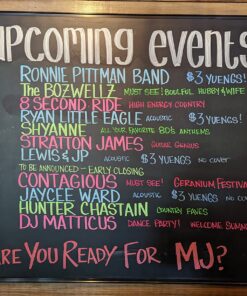 UPCOMING EVENTS
RONNIE PITTMAN BAND $3 YUENGS!
The BOZWELLZ MUST SEE! SOULFUL HUBBY & WIFE
8 SECOND RIDE HIGH ENERGY COUNTRY
RYAN LITTLE EAGLE ACOUSTIC $3 YUENGS!
SHYANNE ALL YOUR FAVORITE 80's ANTHEMS
STRATTON JAMES GUITAR GENIUS
LEWIS & JP ACOUSTIC $3 YUENGS NO COVER
TO BE ANNOUNCED - EARLY CLOSING
CONTAGIOUS MUST SEE! GERANIUM FESTIVAL
JAYCEE WARD ACOUSTIC $3 YUENGS NO COVER
HUNTER CHASTAIN COUNTRY FAVES
DJ MATTICUS DANCE PARTY! WELCOME SUMM
ARE YOU READY FOR MJ?